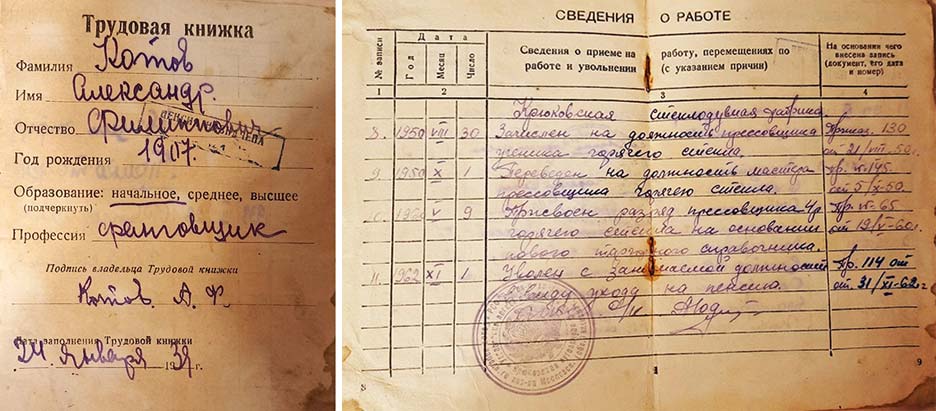 Трудовая книжка
Фамилия Котов
Имя Александр.
Отчество Филиппович
Год рождения 1907.
Образование: начальное, среднее, высшее
(подчеркнуть)
Профессия
Подпись владельца Трудовой книжки
Котов. А. Ф.
Дата заполнения Трудовой книжки
24 января 1939г.
СВЕДЕНИЯ О РАБОТЕ
№ записи
Дата
Год
Месяц
Число
Сведения о приеме на работу, перемещениях по
работе и увольнении (с указанием причин)
На основании чего
внесена запись
(документ, его дата
и номер)
1 2 3 4
Крюковская стеклодувная фабрика
8. 1950 VIII 30 Зачислен на должность прессовщика Приказ. 130
ученика горячего стекла. от 31/VIII-50г.
9. 1950 X 1 Переведен на должность мастера пр. №145
прессовщика горячего стекла. от 5/X-50.
V 9 Присвоен разряд прессовщика 4р. пр. №65
горячего стекла на основании от 19/V-60г.
нового тарифного справочника.
11. 1962 XI 1 Уволен с занимаемой должности пр. 114 от
ввиду ухода на пенсию. от 31/XI-62г.
8 9